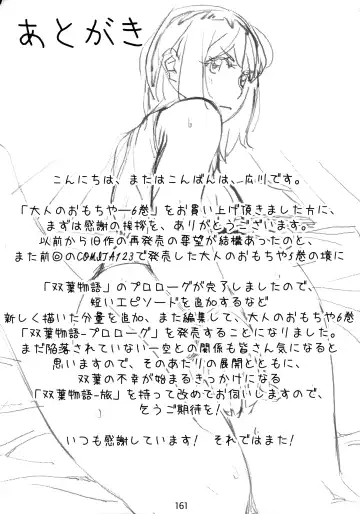 あとがき
こんにちは、またはこんばんは、広川です。
「大人のおもちゃー6巻」をお買い上げ頂きました方に、
まずは感謝の挨拶を、ありがとうございます。
以前から旧作の再発売の要望が結構あったのと、
また前回のCOMITA123で発売した大人のおもちゃ5巻の頃に
「双葉物語」のプロローグが完了しましたので、
短いエピソードを追加するなど
新しく描いた分量を追加、また編集して、大人のおもちゃ6巻
「双葉物語-プロローグ」を発売することになりました。
まだ陥落されていない一空との関係も皆さん気になると
思いますので、そのあたりの展開とともに、
双葉の不幸が始まるきっかけになる
「双葉物語-旅」を持って改めてお伺いしますので、
乞うご期待を!
いつも感謝しています! それではまた!
161